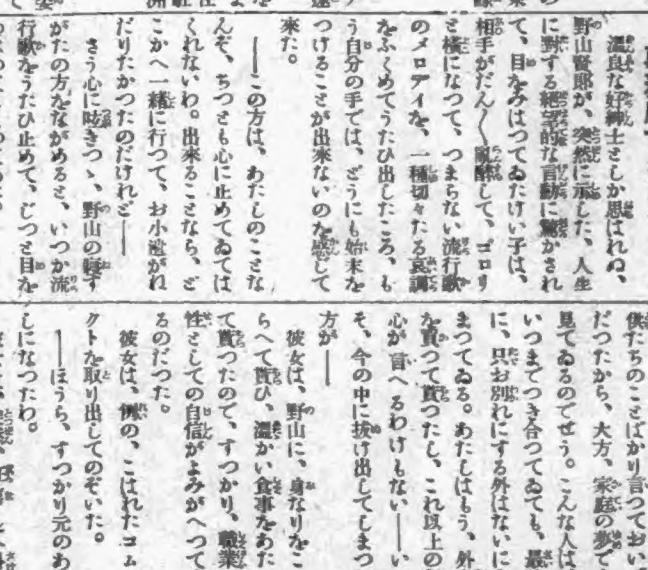 溫良な好紳士としか思はれぬ、
野山賢郎が、突然に示した、人生
に對する絕望的な言動に驚かされ
て、目をみはつてゐたけい子は、
相手がだん〳〵亂醉して、ゴロリ
と橫になつて、つまらない流行歌
のメロディを、一種切々たる哀調
をふくめてうたひ出したころ、も
う自分の手では、どうにも始末を
つけることが出來ないのを感じて
來た。
――この方は、あたしのことな
んぞ、ちつとも心に止めてゐては
くれないわ。出來ることなら、ど
こかへ一緒に行つて、お小遣がれ
だりたかつたのだけれど――
さう心に呟きつゝ、野山の寢す
がたの方をながめると、いつか流
行歌をうたひ止めて、じつと目を
供たちのことばかり言つておい
だつたから、大方、家庭の夢で
見てゐるのでせう。こんな人は
いつまでつき合つてゐても、最
に、只お別れにする外はないに
まつてゐる。あたしはもう、外
を貰つて貰つたし、これ以上の
心が言へるわけもない――い
そ、今の中に拔け出してしまつ
方が――
彼女は、野山に、身なりをこ
らへて貰ひ、溫かい食事をあた
て貰つたので、すつかり、職業
性としての自信がよみがへつて
るのだつた。
彼女は、例の、こはれたコム
クトを取り出してのぞいた。
――ほうら、すつかり元のあ
しになつたわ。